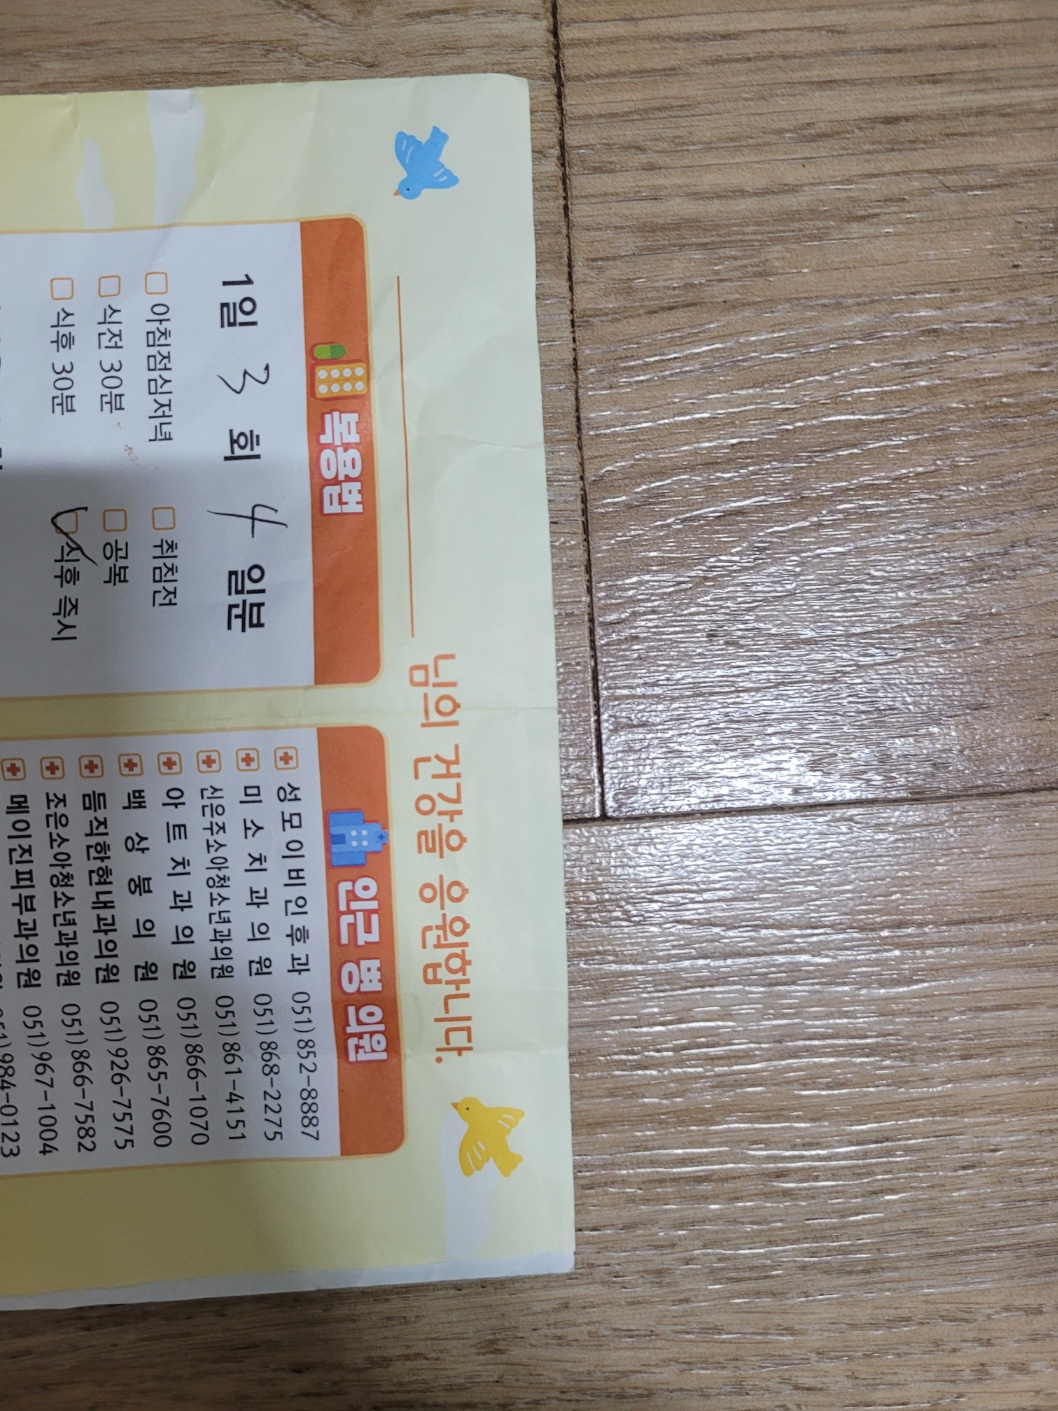 님의 건강을 응원합니다.
복용법
1일 3 회 4 일분
아침점심저녁 취침전
식전 30분 공복
식후 30분 식후 즉시
인근 병 의원
성모이비인후과 051)852-8887
미소치과의원 051)868-2275
신은주소아청소년과의원 051)861-4151
아트치과의원 051)866-1070
백상붕의원 051)865-7600
듬직한현내과의원 051)926-7575
조은소아청소년과의원 051)866-7582
메이진피부과의원 051)967-1004
984-0123